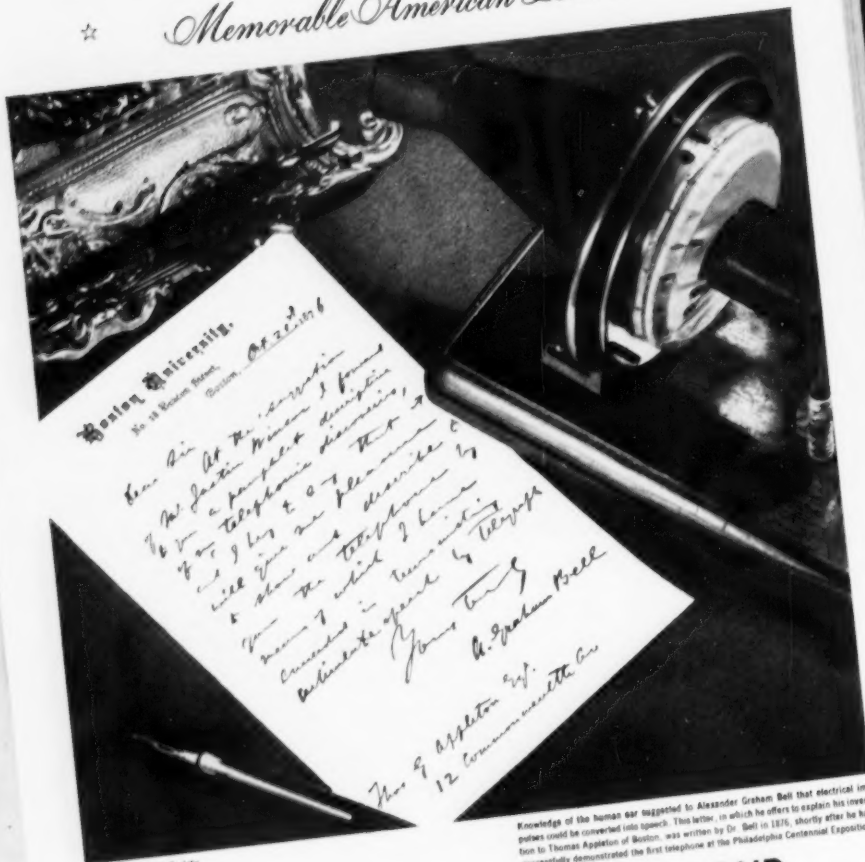 ☆ Memorable American
Boston University,
No. 18 Beacon Street,
Boston, Oct. 21st 1876
Dear Sir
At the suggestion
of Mr. Justin Winsor I forward
to you a pamphlet descriptive
of my telephonic discoveries,
and I beg to say that it
will give me pleasure to
to show and describe to
you the telephone by
means of which I have
succeeded in transmitting
articulate speech by telegraph
Yours truly
A. Graham Bell
Thos G Appleton Esq.
12 Commonwealth Av
Knowledge of the human ear suggested to Alexander Graham Bell that electrical im-
pulses could be converted into speech. This letter, in which he offers to explain his inven-
tion to Thomas Appleton of Boston, was written by Dr. Bell in 1876, shortly after he ha
successfully demonstrated the first telephone at the Philadelphia Centennial Expositi